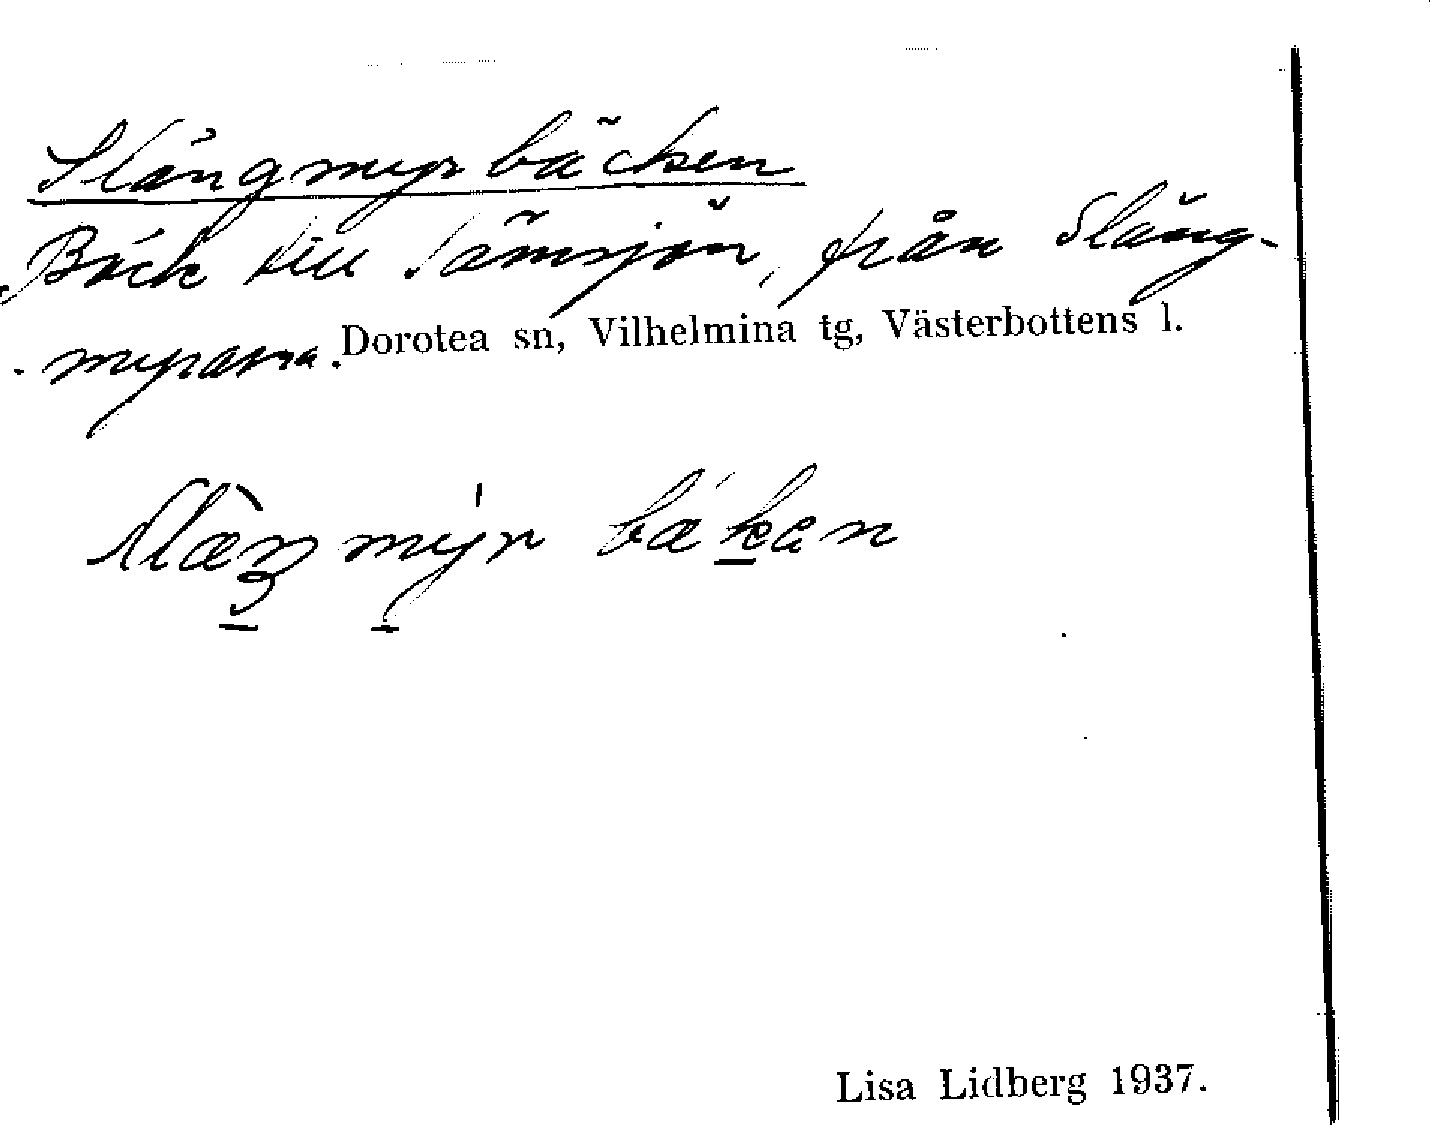 Slängmyrbäcken
Bäck till Tämsjön, från Släng-
-myrarna.
Dorotea sn, Vilhelmina tg, Västerbottens l.
Lisa Lidberg 1937.